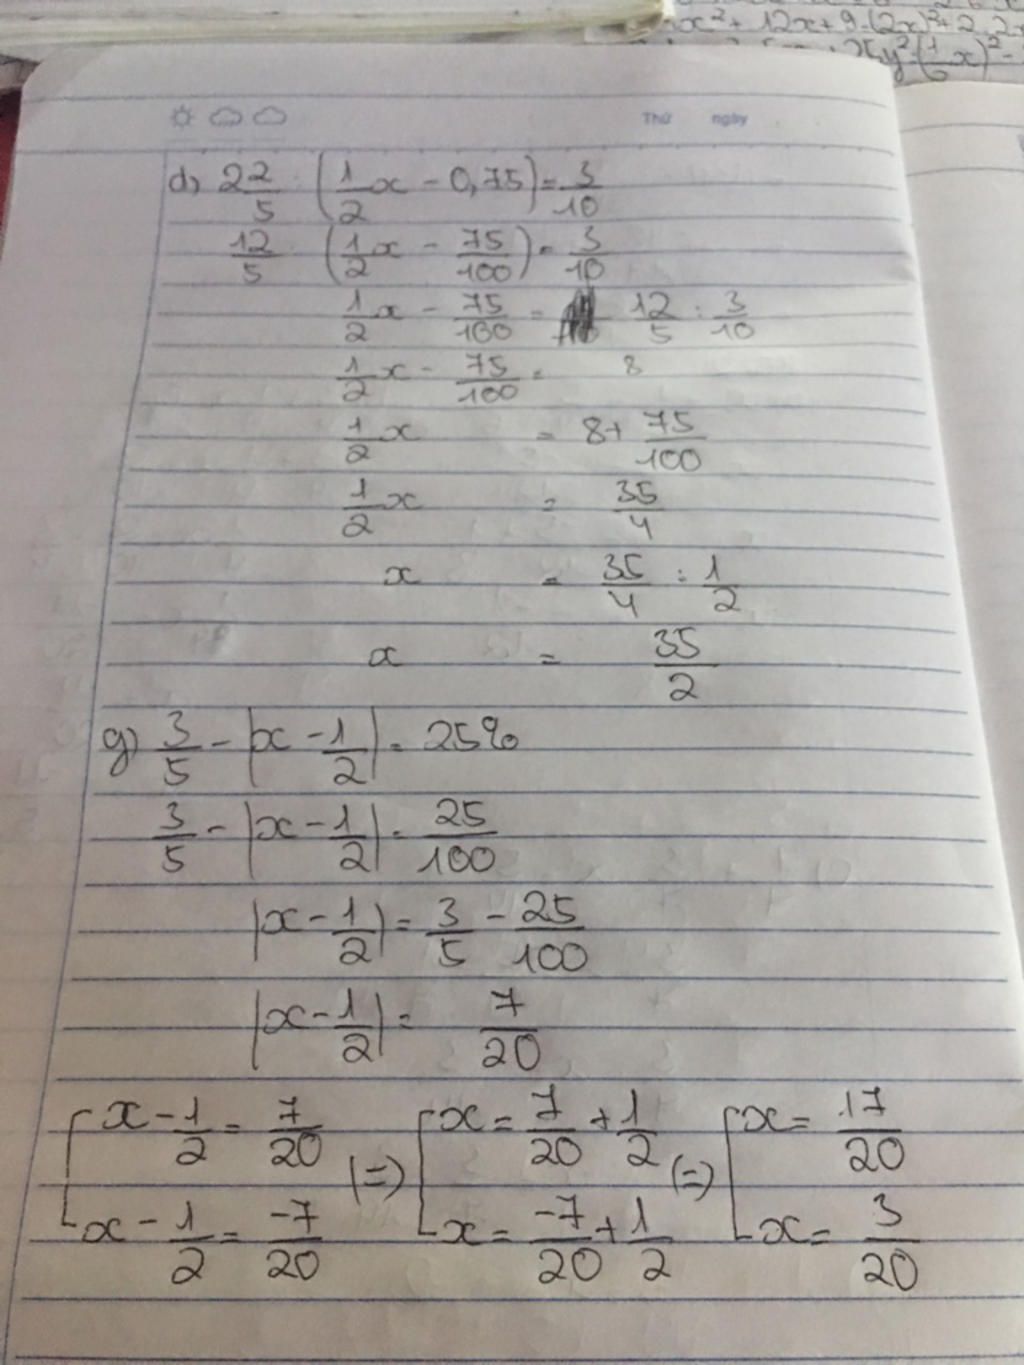 x² + 12x + 9 = (2x)² + 2.2x
25y² = (1/6 x)² -
Thứ ngày
d) 2 2/5 : (1/2 x - 0,75) = 3/10
12/5 (1/2 x - 75/100) = 3/10
1/2 x - 75/100 = 12/5 : 3/10
1/2 x - 75/100 = 8
1/2 x = 8 + 75/100
1/2 x = 35/4
x = 35/4 : 1/2
x = 35/2
g) 3/5 - |x - 1/2| = 25%
3/5 - |x - 1/2| = 25/100
|x - 1/2| = 3/5 - 25/100
|x - 1/2| = 7/20
[x - 1/2 = 7/20 (=) [x = 7/20 + 1/2 (=) [x = 17/20
[x - 1/2 = -7/20 [x = -7/20 + 1/2 [x = 3/20